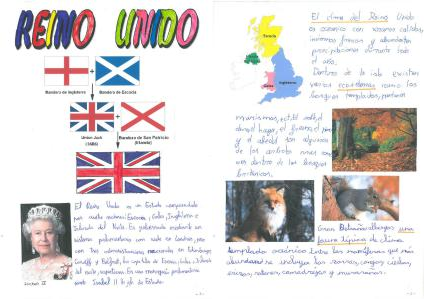 REINO UNIDO
+
Bandera de Inglaterra
Bandera de Escocia
+
Union Jack
(1606)
Bandera de San Patricio
(Irlanda)
El Reino Unido es un Estado
por cuatro Escocia, Gales, Inglaterra e
Irlanda del Norte. Es gobernado mediante un
sistema parlamentario con sede en Londres, pero
con tres administraciones nacionales en Edimburgo,
Cardiff y Belfast, las capitales de Escocia, Gales e Irlanda
del norte, Es una monarquía parlamentaria
Isabel II la jefa de Estado.
Isabel II
El clima del Reino Unido
es oceánico con veranos cálidos,
inviernos frescos y abundantes
precipitaciones durante todo
el año.
Dentro de la isla existen
varios ecosistemas como los
bosques templados,
Escocia
Gales
Inglaterra
el
y el son algunos
de los árboles
dentro de los bosques
británicos.
Gran Bretaña una
fauna típica de clima
templado oceánico. Entre los mamíferos que más
abundan se incluyen los zorros,